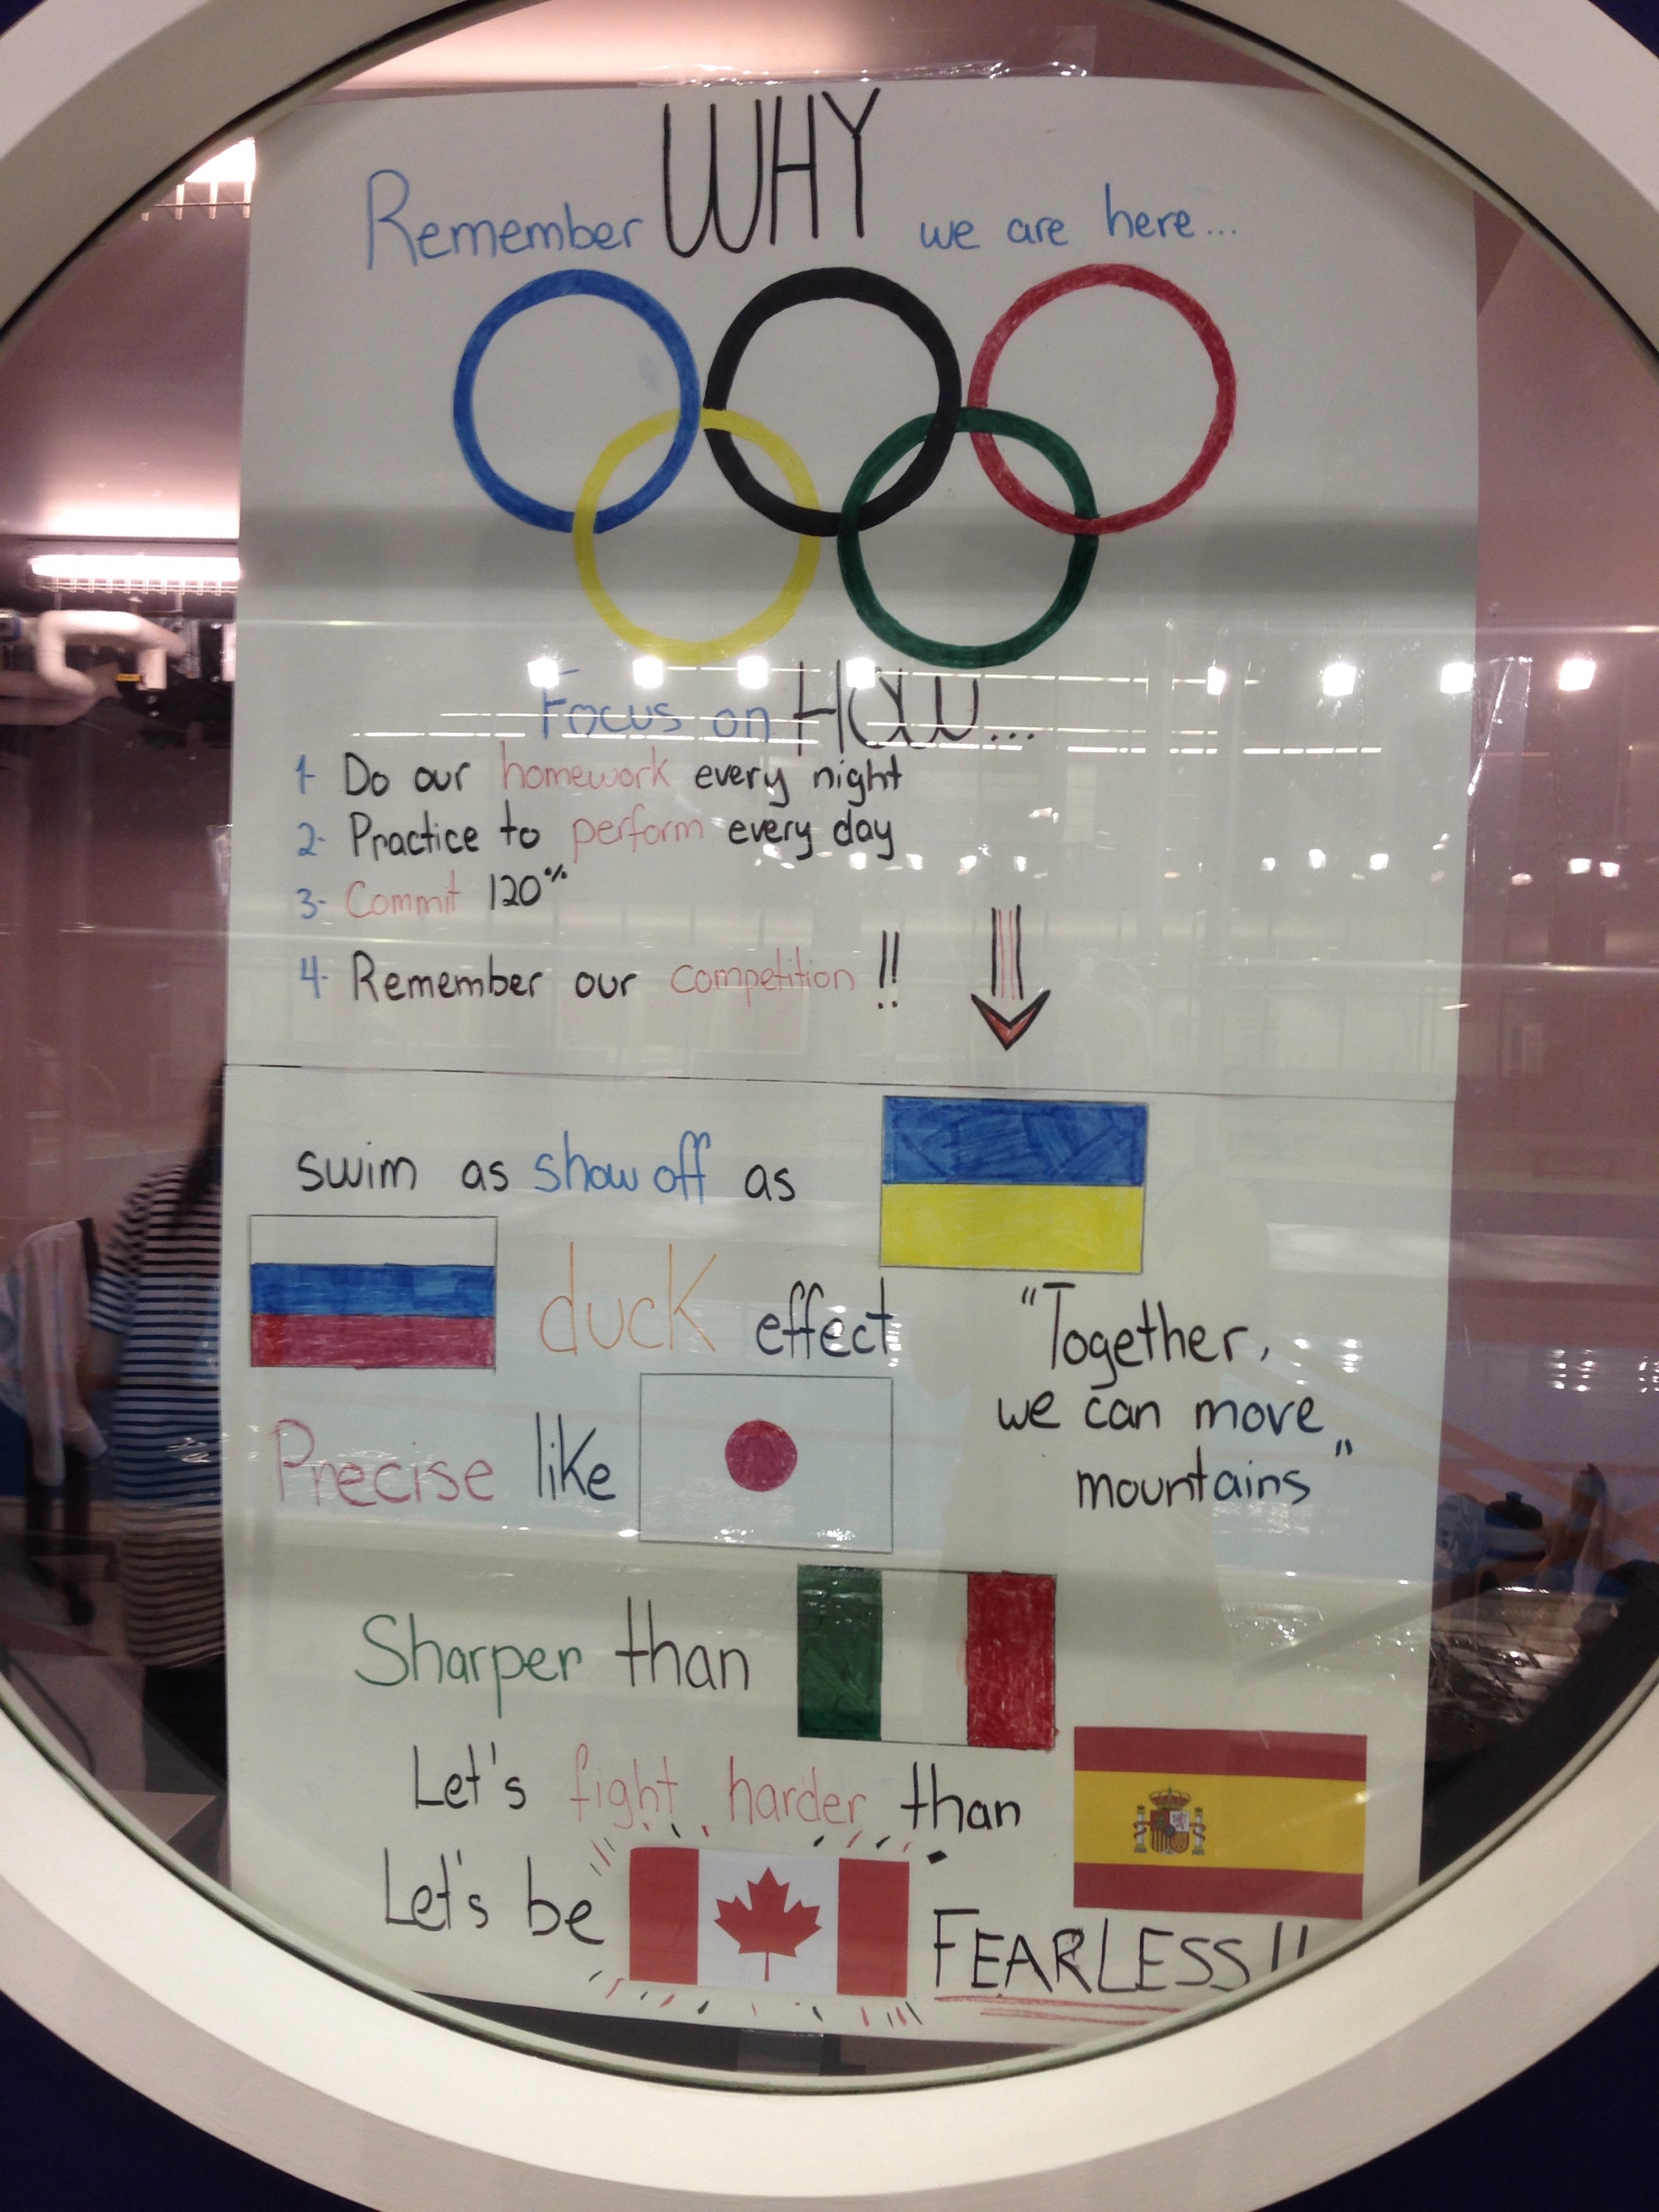 Remember WHY we are here...
Focus on HOW...
1- Do our homework every night
2- Practice to perform every day
3- Commit 120%
4- Remember our competition !!
swim as show off as
duck effect
"Together,
we can move
mountains"
Precise like
Sharper than
Let's fight harder than
Let's be FEARLESS!!